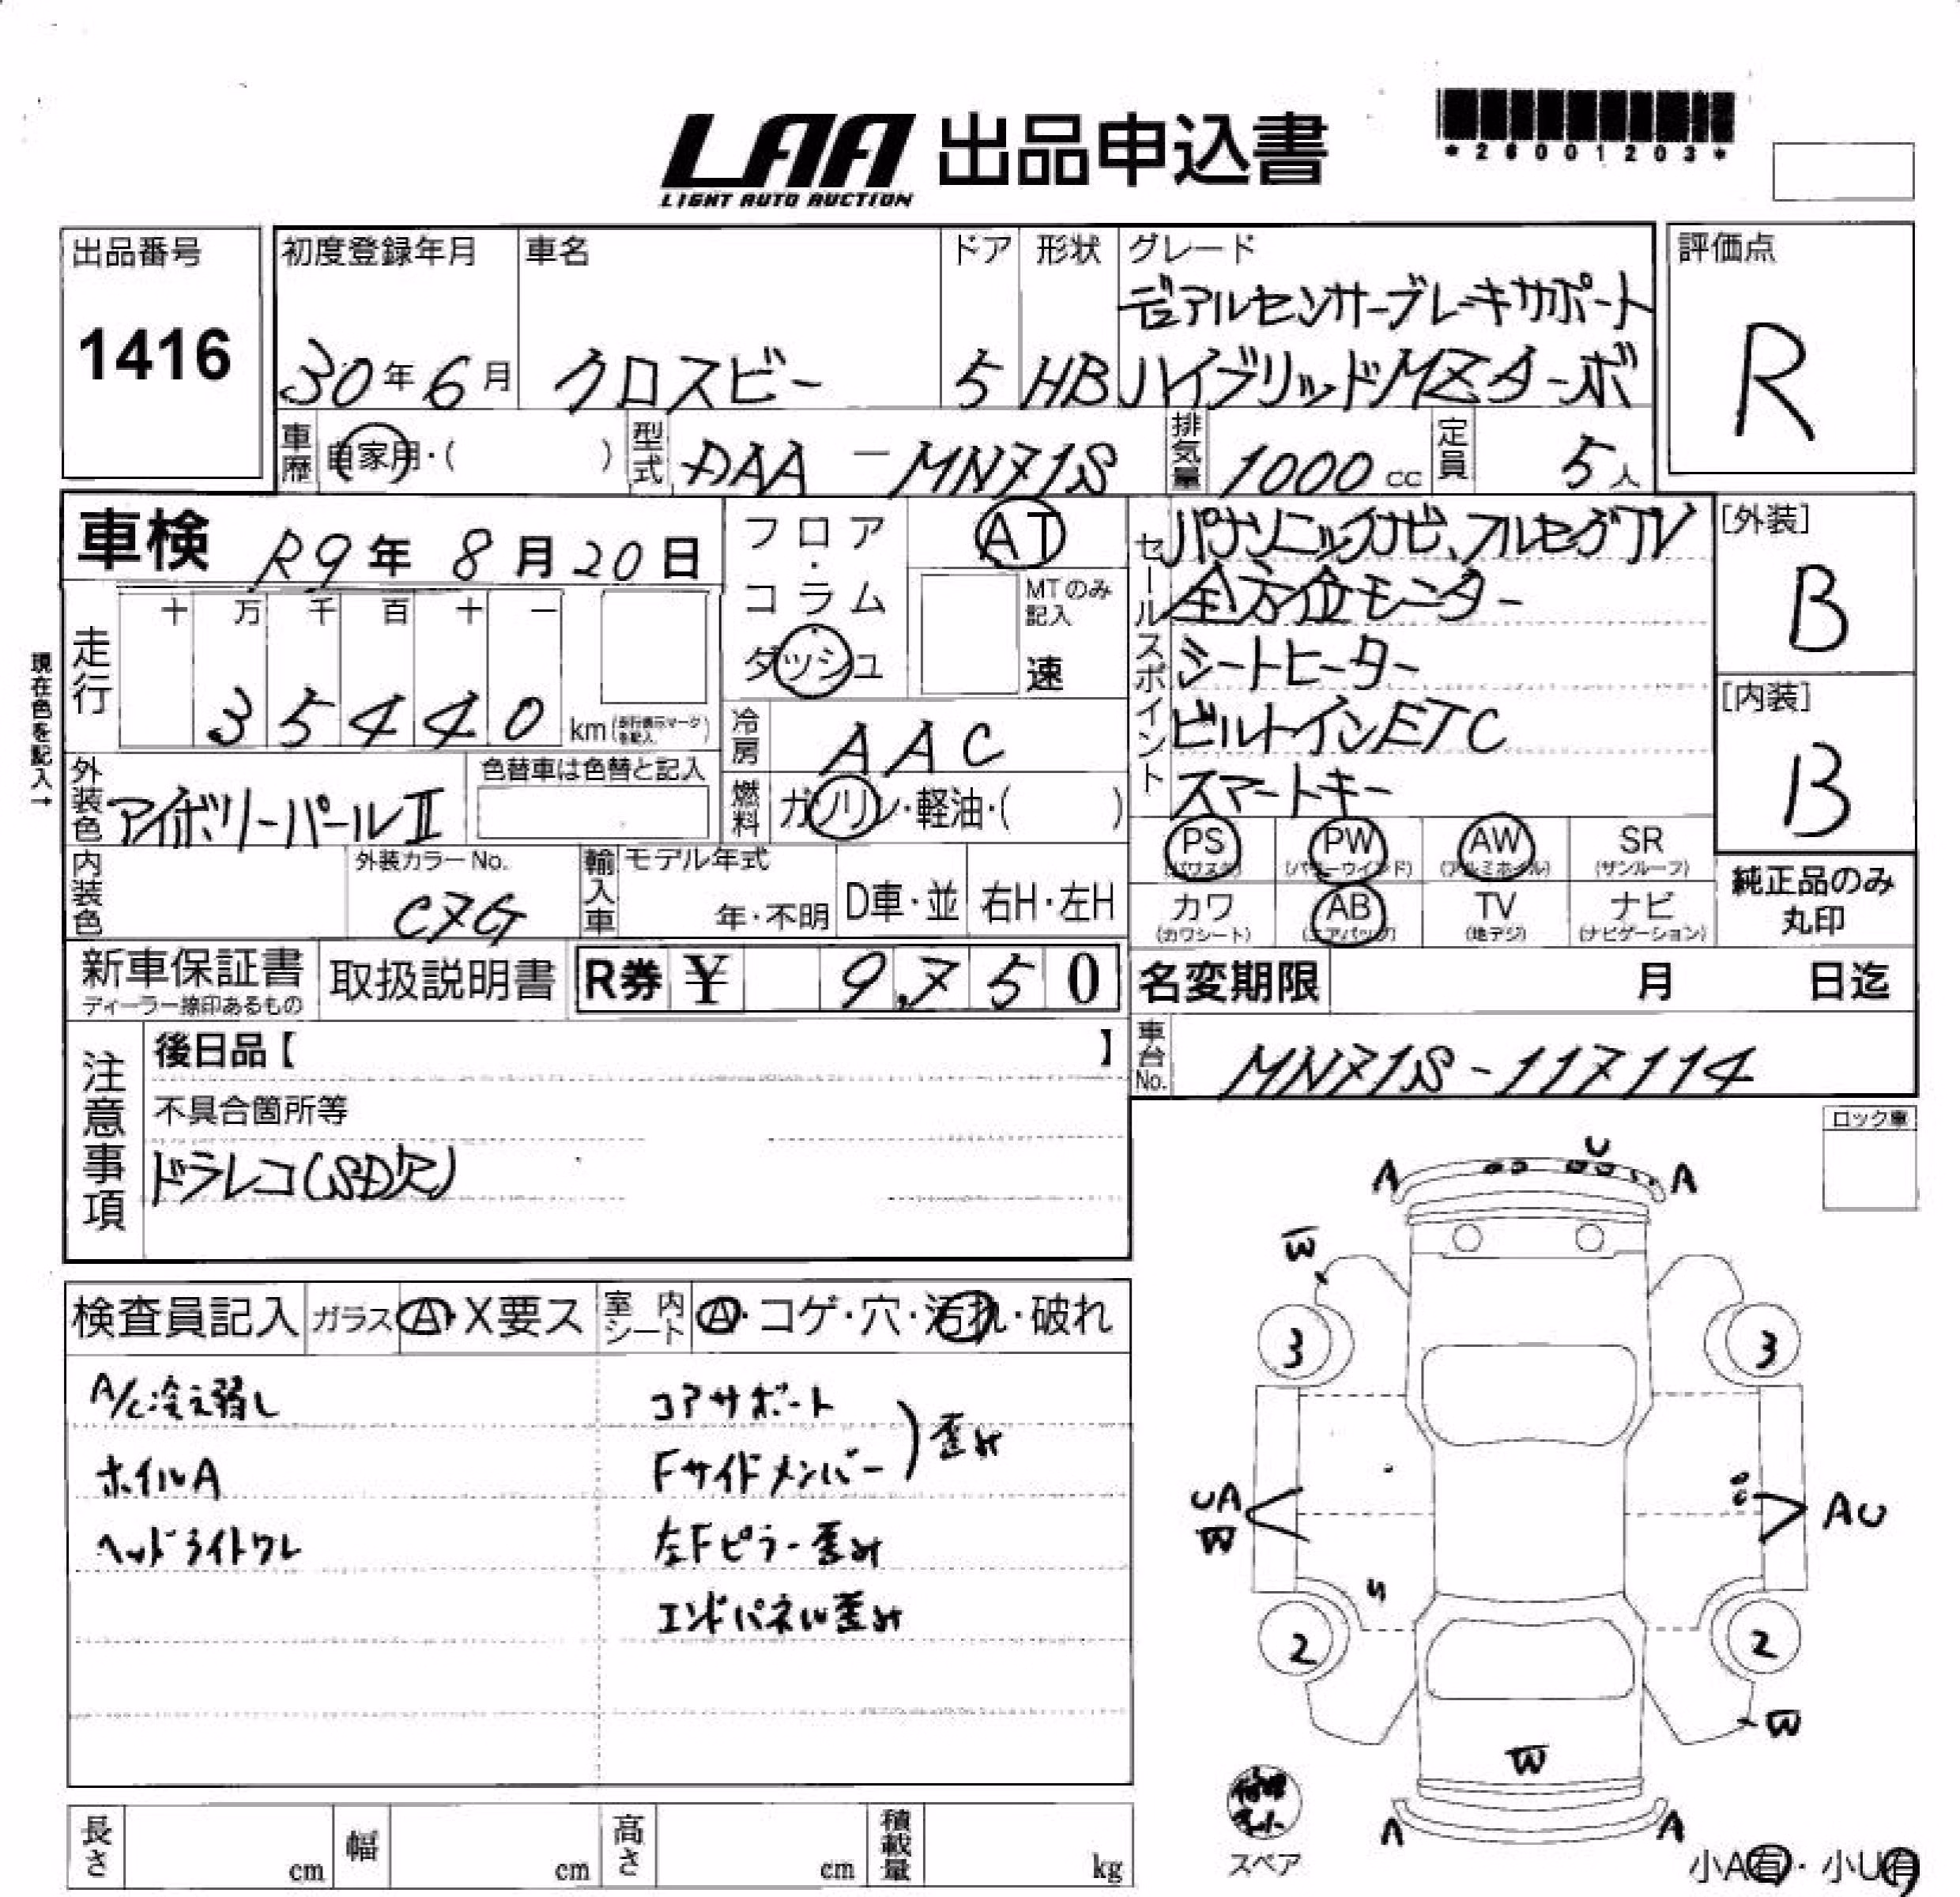 LAA 出品申込書
LIGHT AUTO AUCTION
*26001203*
出品番号
1416
初度登録年月
30年6月
車名
クロスビー
ドア
5
形状
HB
グレード
デュアルセンサーブレーキサポート
ハイブリッドMZターボ
評価点
R
車歴 自家用・( )
型式 DAA-MN71S
排気量 1000cc
定員 5人
車検 R9年 8月20日
フロア・コラム・ダッシュ
AT
MTのみ記入
速
セールスポイント
パナソニックナビ、フルセグTV
全方位モニター
シートヒーター
ビルトインETC
スマートキー
[外装]
B
[内装]
B
現在色を記入→
走行
十 万 千 百 十 一
3 5 4 4 0 km
冷房 AAC
燃料 ガソリン・軽油・( )
外装色 アイボリーパールⅡ
色替車は色替と記入
内装色
外装カラーNo.
C7G
輸入車 モデル年式
年・不明
D車・並
右H・左H
PS (パワステ)
PW (パワーウインド)
AW (アルミホイル)
SR (サンルーフ)
カワ (カワシート)
AB (エアバッグ)
TV (地デジ)
ナビ (ナビゲーション)
純正品のみ
丸印
新車保証書
ディーラー捺印あるもの
取扱説明書
R券 ¥ 9,750
名変期限 月 日迄
車台No. MN71S-117114
注意事項
後日品【 】
不具合箇所等
ドラレコ(SD欠)
ロック車
検査員記入
ガラス A・X要ス
室内シート A・コゲ・穴・汚れ・破れ
A/C冷え弱し
ホイルA
ヘッドライトワレ
コアサポート
Fサイドメンバー
)歪み
左Fピラー歪み
エンドパネル歪み
U
A
A
W
3
3
UA
W
AU
2
2
W
W
A
A
スペア
小A有・小U有
長さ cm
幅 cm
高さ cm
積載量 kg